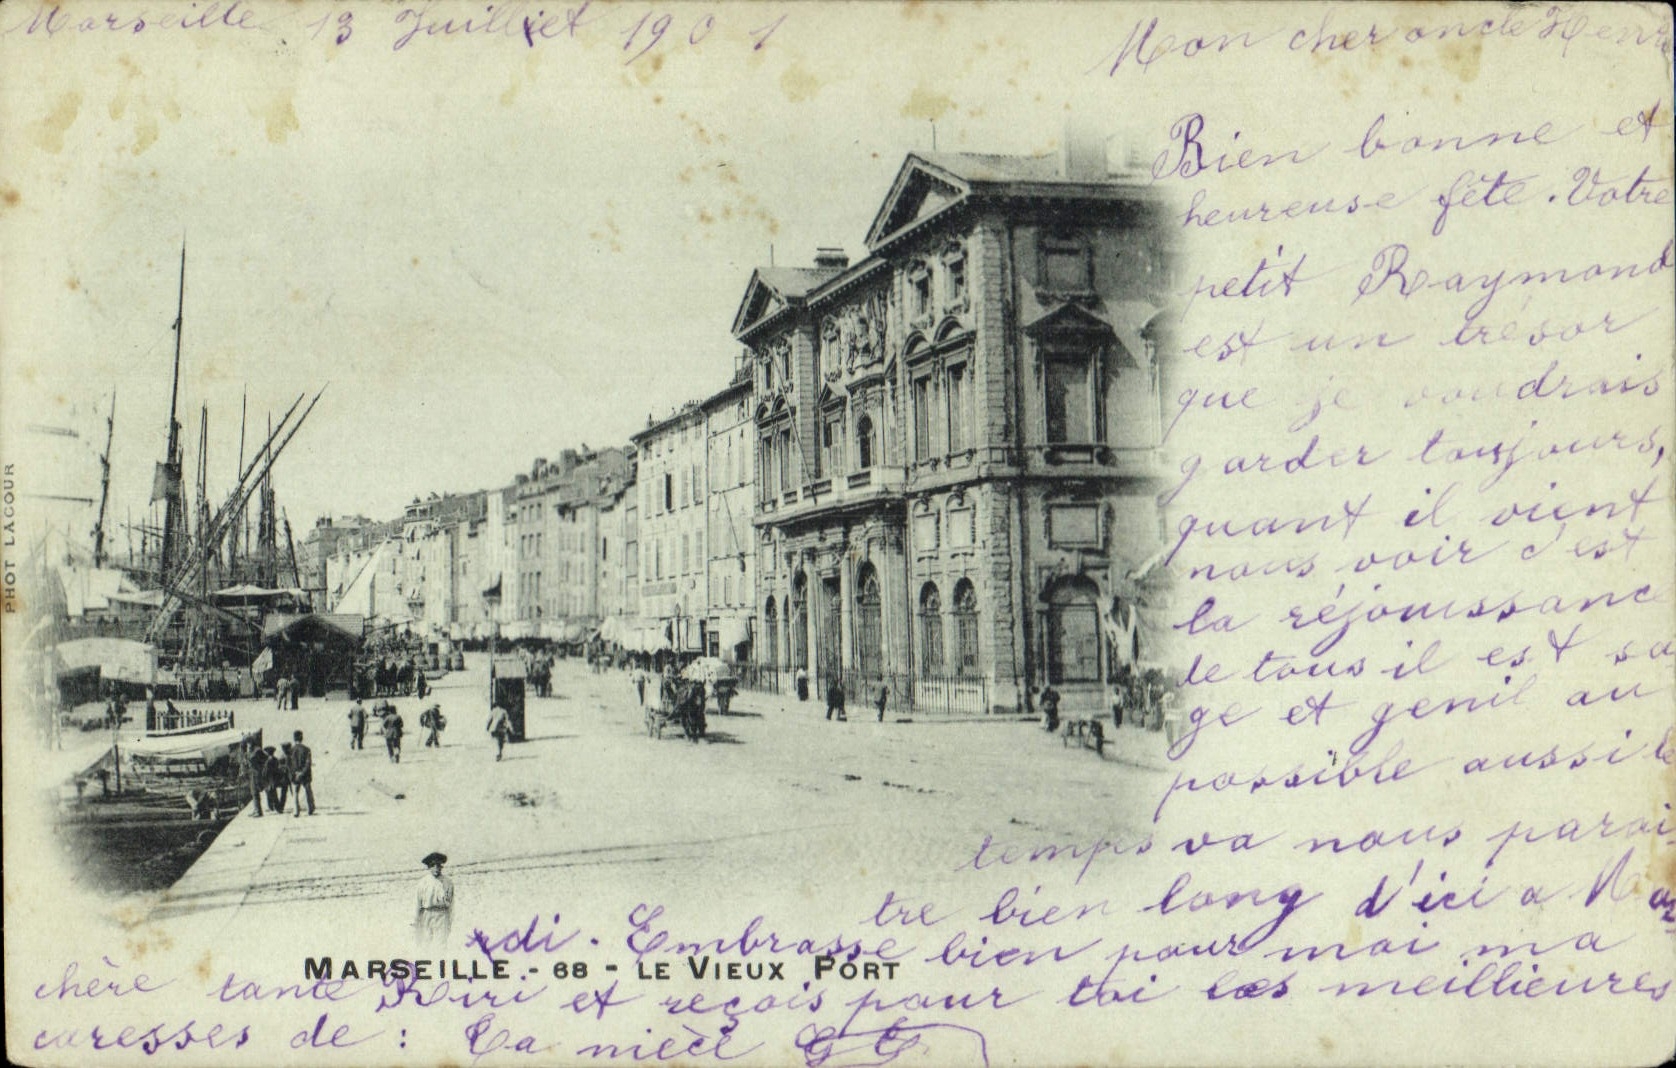 Marseille 13 Juilliet 1901
Mon cher oncle Henri
Bien bonne et
heureuse fête. Votre
petit Raymond
est un trésor
que je voudrais
garder toujours,
quant il vient
nous voir c'est
la réjouissance
de tous il est sa
ge et genil au
possible aussi le
temps va nous parai-
tre bien long d'ici a Mar-
rdi. Embrasse bien pour moi ma
chère tante Riri et reçois pour toi les meillieures
caresses de : Ta nièce
MARSEILLE. - 68 - LE VIEUX PORT
PHOT LACOUR